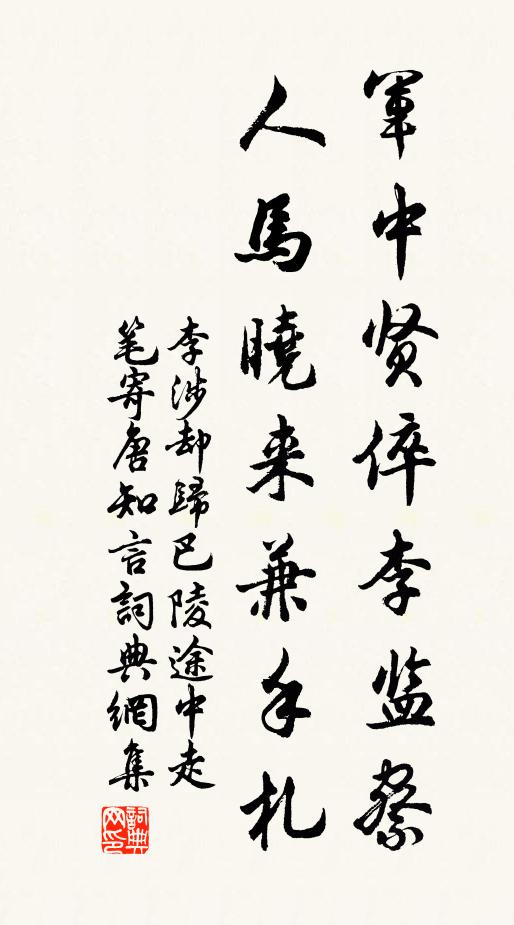 軍中贤倅李监察
人馬曉来兼手札
李涉却歸巴陵途中走
笔寄唐知言詞典網集
詞典网印